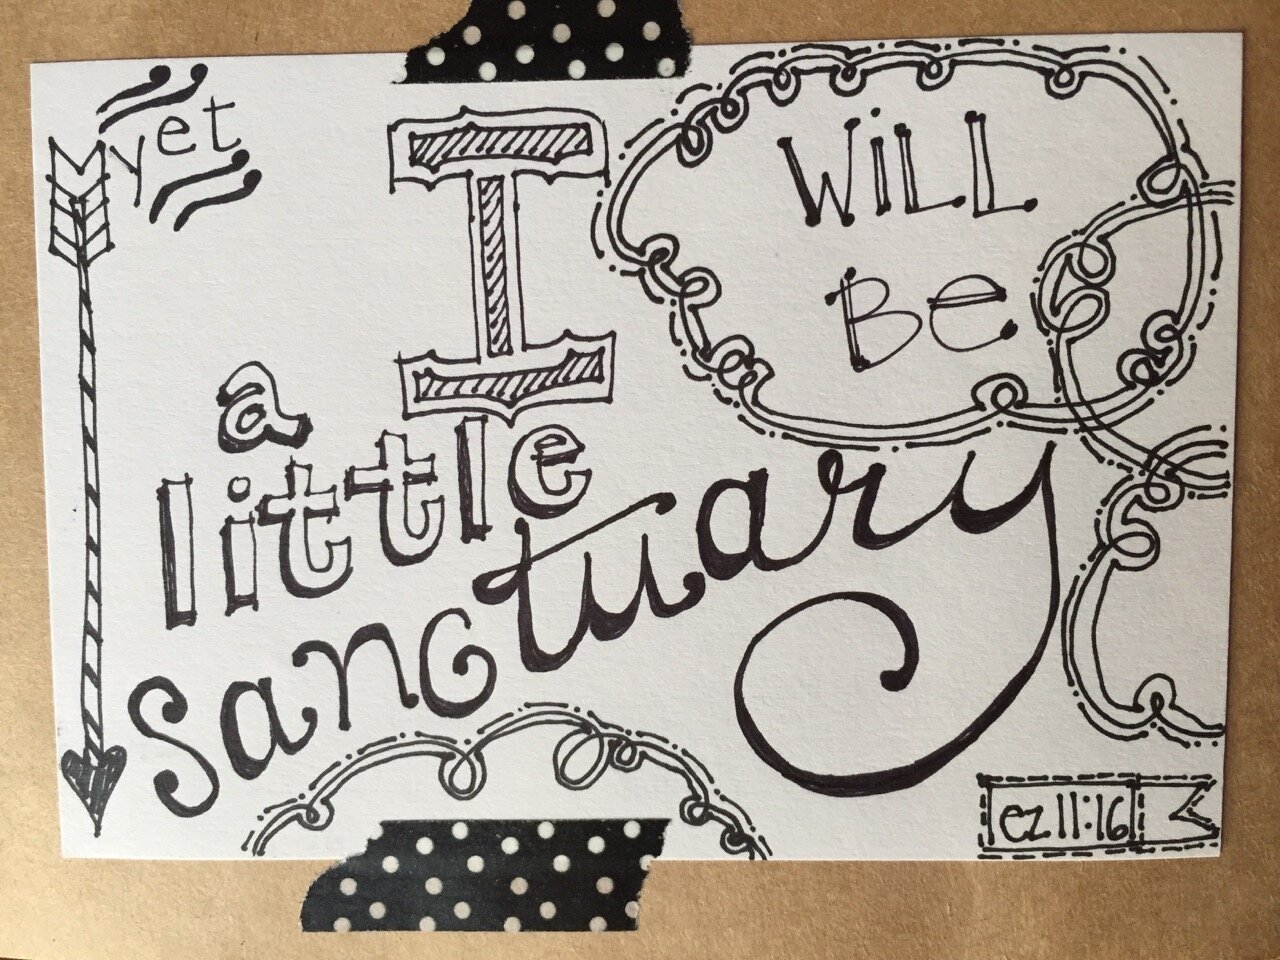 yet
I
WiLL
Be
a
little
Sanctuary
ez 11:16